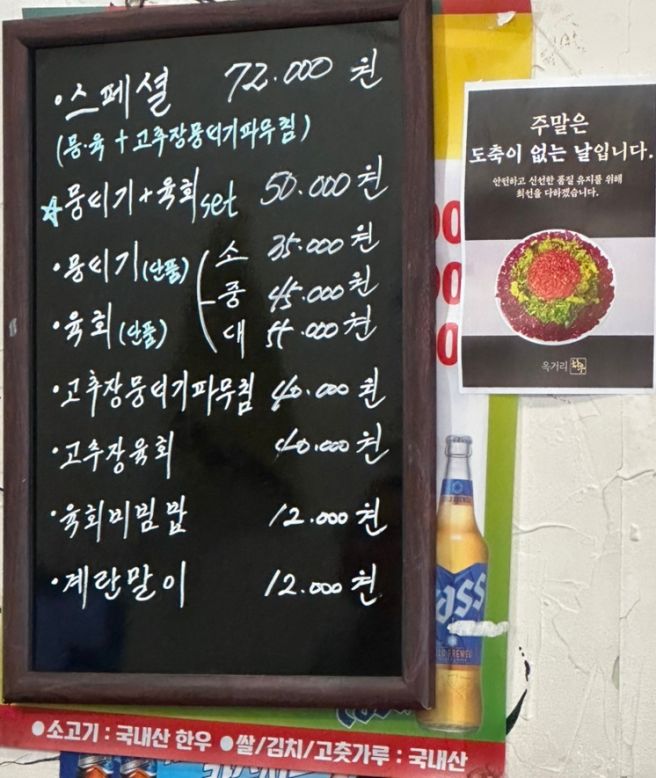 ·스페셜 72.000원
(뭉·육+고추장뭉티기파무침)
☆뭉티기+육회set 50.000원
·뭉티기(단품) 소 35.000원
중 45.000원
·육회(단품) 대 55.000원
·고추장뭉티기파무침 40.000원
·고추장육회 40.000원
·육회비빔밥 12.000원
·계란말이 12.000원
주말은
도축이 없는 날입니다.
안전하고 신선한 품질 유지를 위해
최선을 다하겠습니다.
옥거리 한우
00
00
0
Cass
●소고기 : 국내산 한우 ●쌀/김치/고춧가루 : 국내산